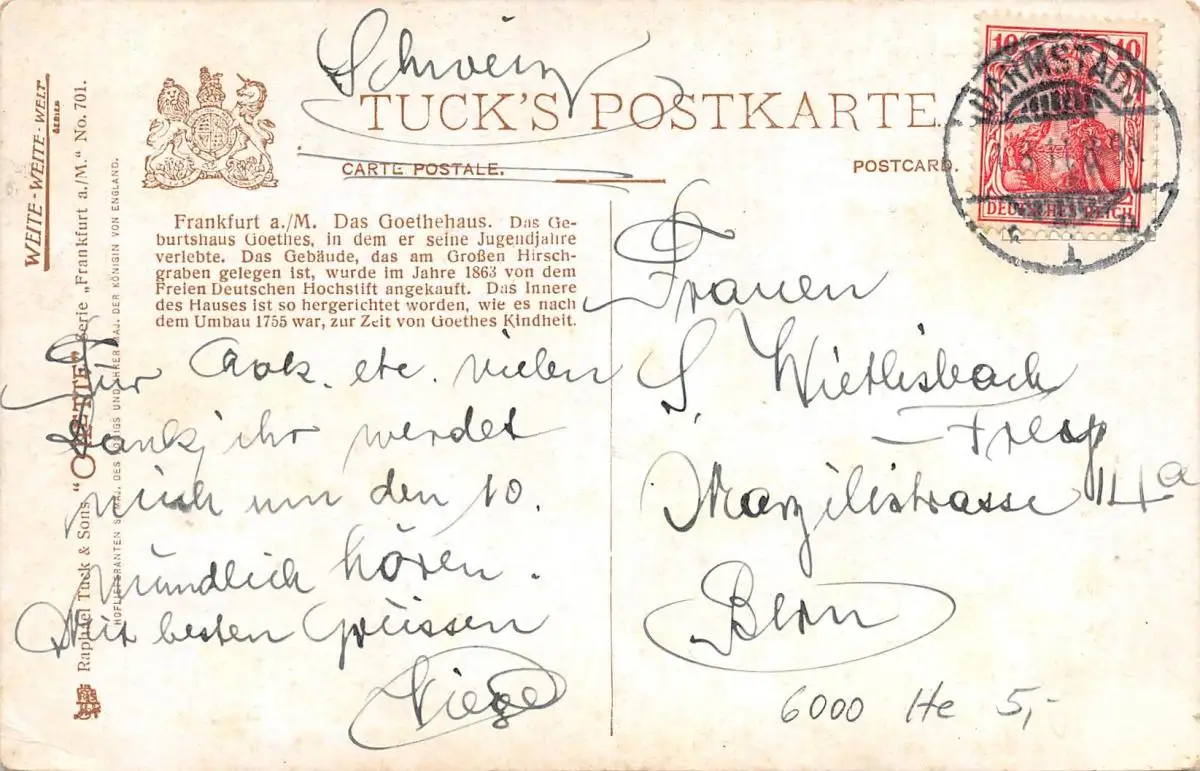 Schweiz
TUCK'S POSTKARTE.
CARTE POSTALE.
POSTCARD.
WEITE-WEITE-WELT
SERIEN
Raphael Tuck & Sons' "OILETTE" Serie „Frankfurt a./M." No. 701.
HOFLIEFERANTEN S. MAJ. DES KÖNIGS UND IHRER MAJ. DER KÖNIGIN VON ENGLAND.
10 10
DEUTSCHES REICH
DARMSTADT
1
Frankfurt a./M. Das Goethehaus. Das Ge-
burtshaus Goethes, in dem er seine Jugendjahre
verlebte. Das Gebäude, das am Großen Hirsch-
graben gelegen ist, wurde im Jahre 1863 von dem
Freien Deutschen Hochstift angekauft. Das Innere
des Hauses ist so hergerichtet worden, wie es nach
dem Umbau 1755 war, zur Zeit von Goethes Kindheit.
Für etc. vielen
Dank, ihr werdet
mich um den 10.
mündlich hören.
Mit besten Grüssen
Frauen
S. Wietlisbach
Marzilistrasse 14a
Bern
6000 He 5,-